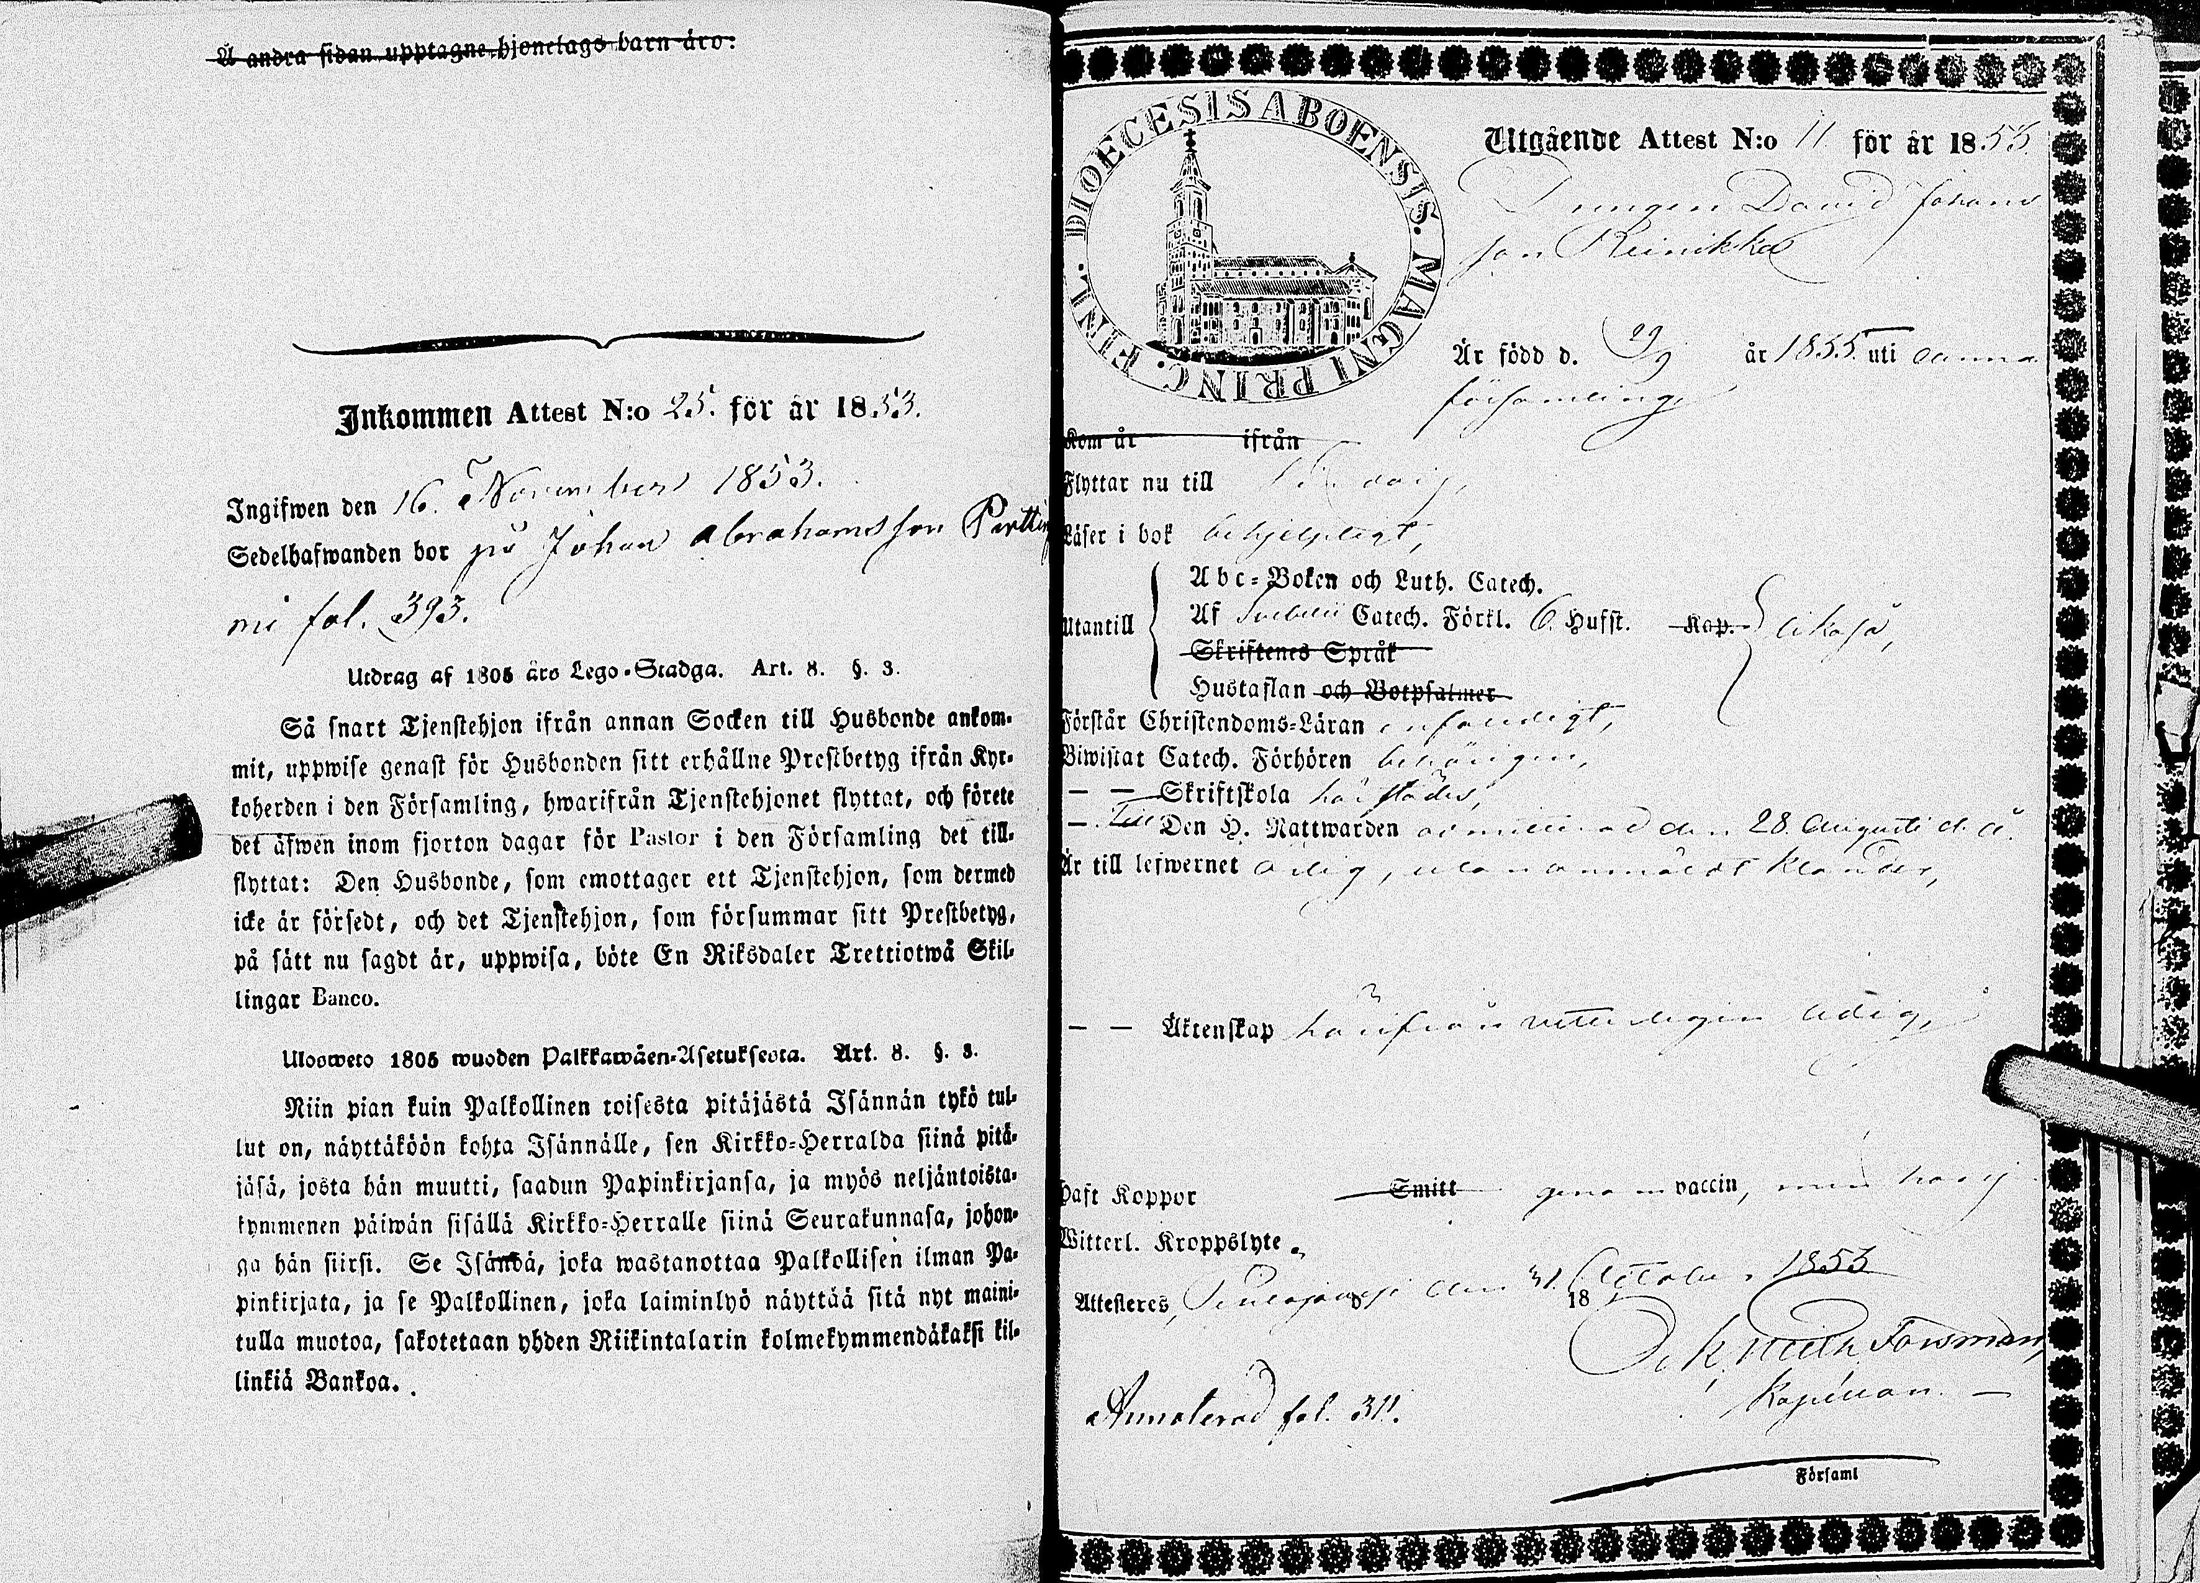 Å andra sidan upptagne hjonelags barn äro:
Inkommen Attest N:o 25. för år 1853.
Ingifwen den 16. November 1853.
Sedelhafwanden bor på Johan Abrahamsson
fol. 393.
Utdrag af 1805 års Lego-Stadga. Art. 8. §. 3.
Så snart Tjenstehjon ifrån annan Socken till Husbonde ankom-
mit, uppwise genast för Husbonden sitt erhållne Prestbetyg ifrån Kyr-
koherden i den Församling, hwarifrån Tjenstehjonet flyttat, och förete
det äfwen inom fjorton dagar för Pastor i den Församling det till-
flyttat: Den Husbonde, som emottager ett Tjenstehjon, som dermed
icke är försedt, och det Tjenstehjon, som försummar sitt Prestbetyg,
på sätt nu sagdt är, uppwisa, böte En Riksdaler Trettiotwå Skil-
lingar Banco.
Ulosweto 1805 wuoden Palkkawäen-Asetuksesta. Art. 8. §. 3.
Niin pian kuin Palkollinen toisesta pitäjästä Isännän tykö tul-
lut on, näyttäköön kohta Isännälle, sen Kirkko-Herralda siinä pitä-
jäsä, josta hän muutti, saadun Papinkirjansa, ja myös neljäntoista-
kymmenen päiwän sisällä Kirkko-Herralle siinä Seurakunnasa, johon-
ga hän siirsi. Se Isändä, joka wastanottaa Palkollisen ilman Pa-
pinkirjata, ja se Palkollinen, joka laiminlyö näyttää sitä nyt maini-
tulla muotoa, sakotetaan yhden Riikintalarin kolmekymmendäkaksi kil-
linkiä Bankoa.
DIOECESIS ABOENSIS. MAGNI PRINC. FINL.
Utgående Attest N:o 11 för år 1853.
Drengen David Johans
son Reinikka
Är född d. 29/9 år 1835. uti denna
församling,
Kom år ifrån
Flyttar nu till
Läser i bok behjelpligt,
Utantill
Abc-Boken och Luth. Catech.
Af Svebelii Catech. Förkl. 6. Hufst. Kap. likaså,
Skriftenes Språk
Hustaflan och Botpsalmer
Förstår Christendoms-Läran enfaldigt,
Biwistat Catech. Förhören behörigen,
— — Skriftskola härstädes,
— Till Den H. Nattwarden admitterad den 28 Augusti d. å.
Är till lefwernet ärlig, utan anmäldt klander,
— — Äktenskap härifrån vetterligen ledig,
Haft Koppor Smitt genom vaccin, men har ej
Witterl. Kroppslyte.
Attesteres, den 31 October 1853
18
Forsman,
Kapellan.
Annoterad fol. 311.
Församl